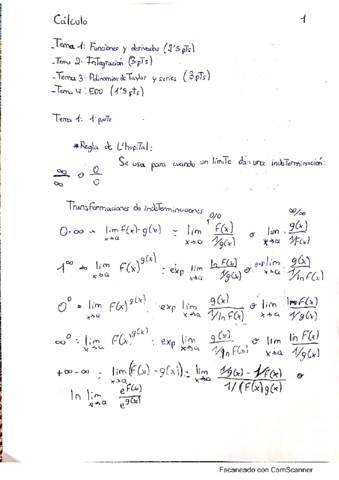 Cálculo 1
- Tema 1: Funciones y derivadas (2'5 pts)
- Tema 2: Integración (3 pts)
- Tema 3: Polinomios de Taylor y series (3 pts)
- Tema 4: EDO (1'5 pts)
Tema 1: 1ª parte
* Regla de L'hopital:
Se usa para cuando un límite da una indeterminación:
∞/∞ o 0/0
Transformaciones de indeterminaciones
0/0 ∞/∞
0·∞ → lim x→a F(x)·g(x) = lim x→a F(x)/(1/g(x)) o lim x→a g(x)/(1/F(x))
1^∞ → lim x→a F(x)^g(x) = exp lim x→a ln F(x)/(1/g(x)) o exp lim x→a g(x)/(1/ln F(x))
0^0 = lim x→a F(x)^g(x) = exp lim x→a g(x)/(1/ln F(x)) o lim x→a ln F(x)/(1/g(x))
∞^0 = lim x→a F(x)^g(x) = exp lim x→a g(x)/(1/ln F(x)) o lim x→a ln F(x)/(1/g(x))
+∞-∞ = lim x→a (F(x) - g(x)) = lim x→a (1/g(x) - 1/F(x))/(1/(F(x)g(x))) o
ln lim x→a e^F(x)/e^g(x)
Escaneado con CamScanner